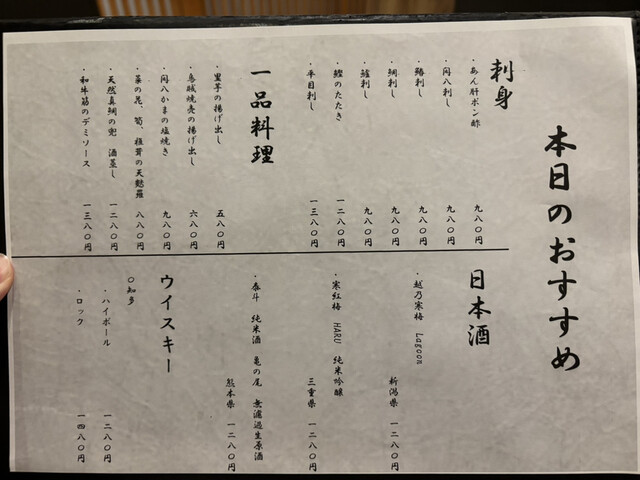 本日のおすすめ
刺身
・あん肝ポン酢 九八〇円
・間八刺し 九八〇円
・刺し 九八〇円
・鯛刺し 九八〇円
・刺し 九八〇円
・鰹のたたき 一二八〇円
・平目刺し 一三八〇円
一品料理
・里芋の揚げ出し 五八〇円
・烏賊焼売の揚げ出し 六八〇円
・間八かまの塩焼き 九八〇円
・菜の花、筍、椎茸の天麩羅 八八〇円
・天然真鯛の兜 酒蒸し 一二八〇円
・和牛筋のデミソース 一三八〇円
日本酒
・越乃寒梅 Lagoon
新潟県 一二八〇円
・寒紅梅 HARU 純米吟醸
三重県 一二八〇円
・泰斗 純米酒 亀の尾 無濾過生原酒
熊本県 一二八〇円
ウイスキー
〇知多
・ハイボール 一二八〇円
・ロック 一四八〇円